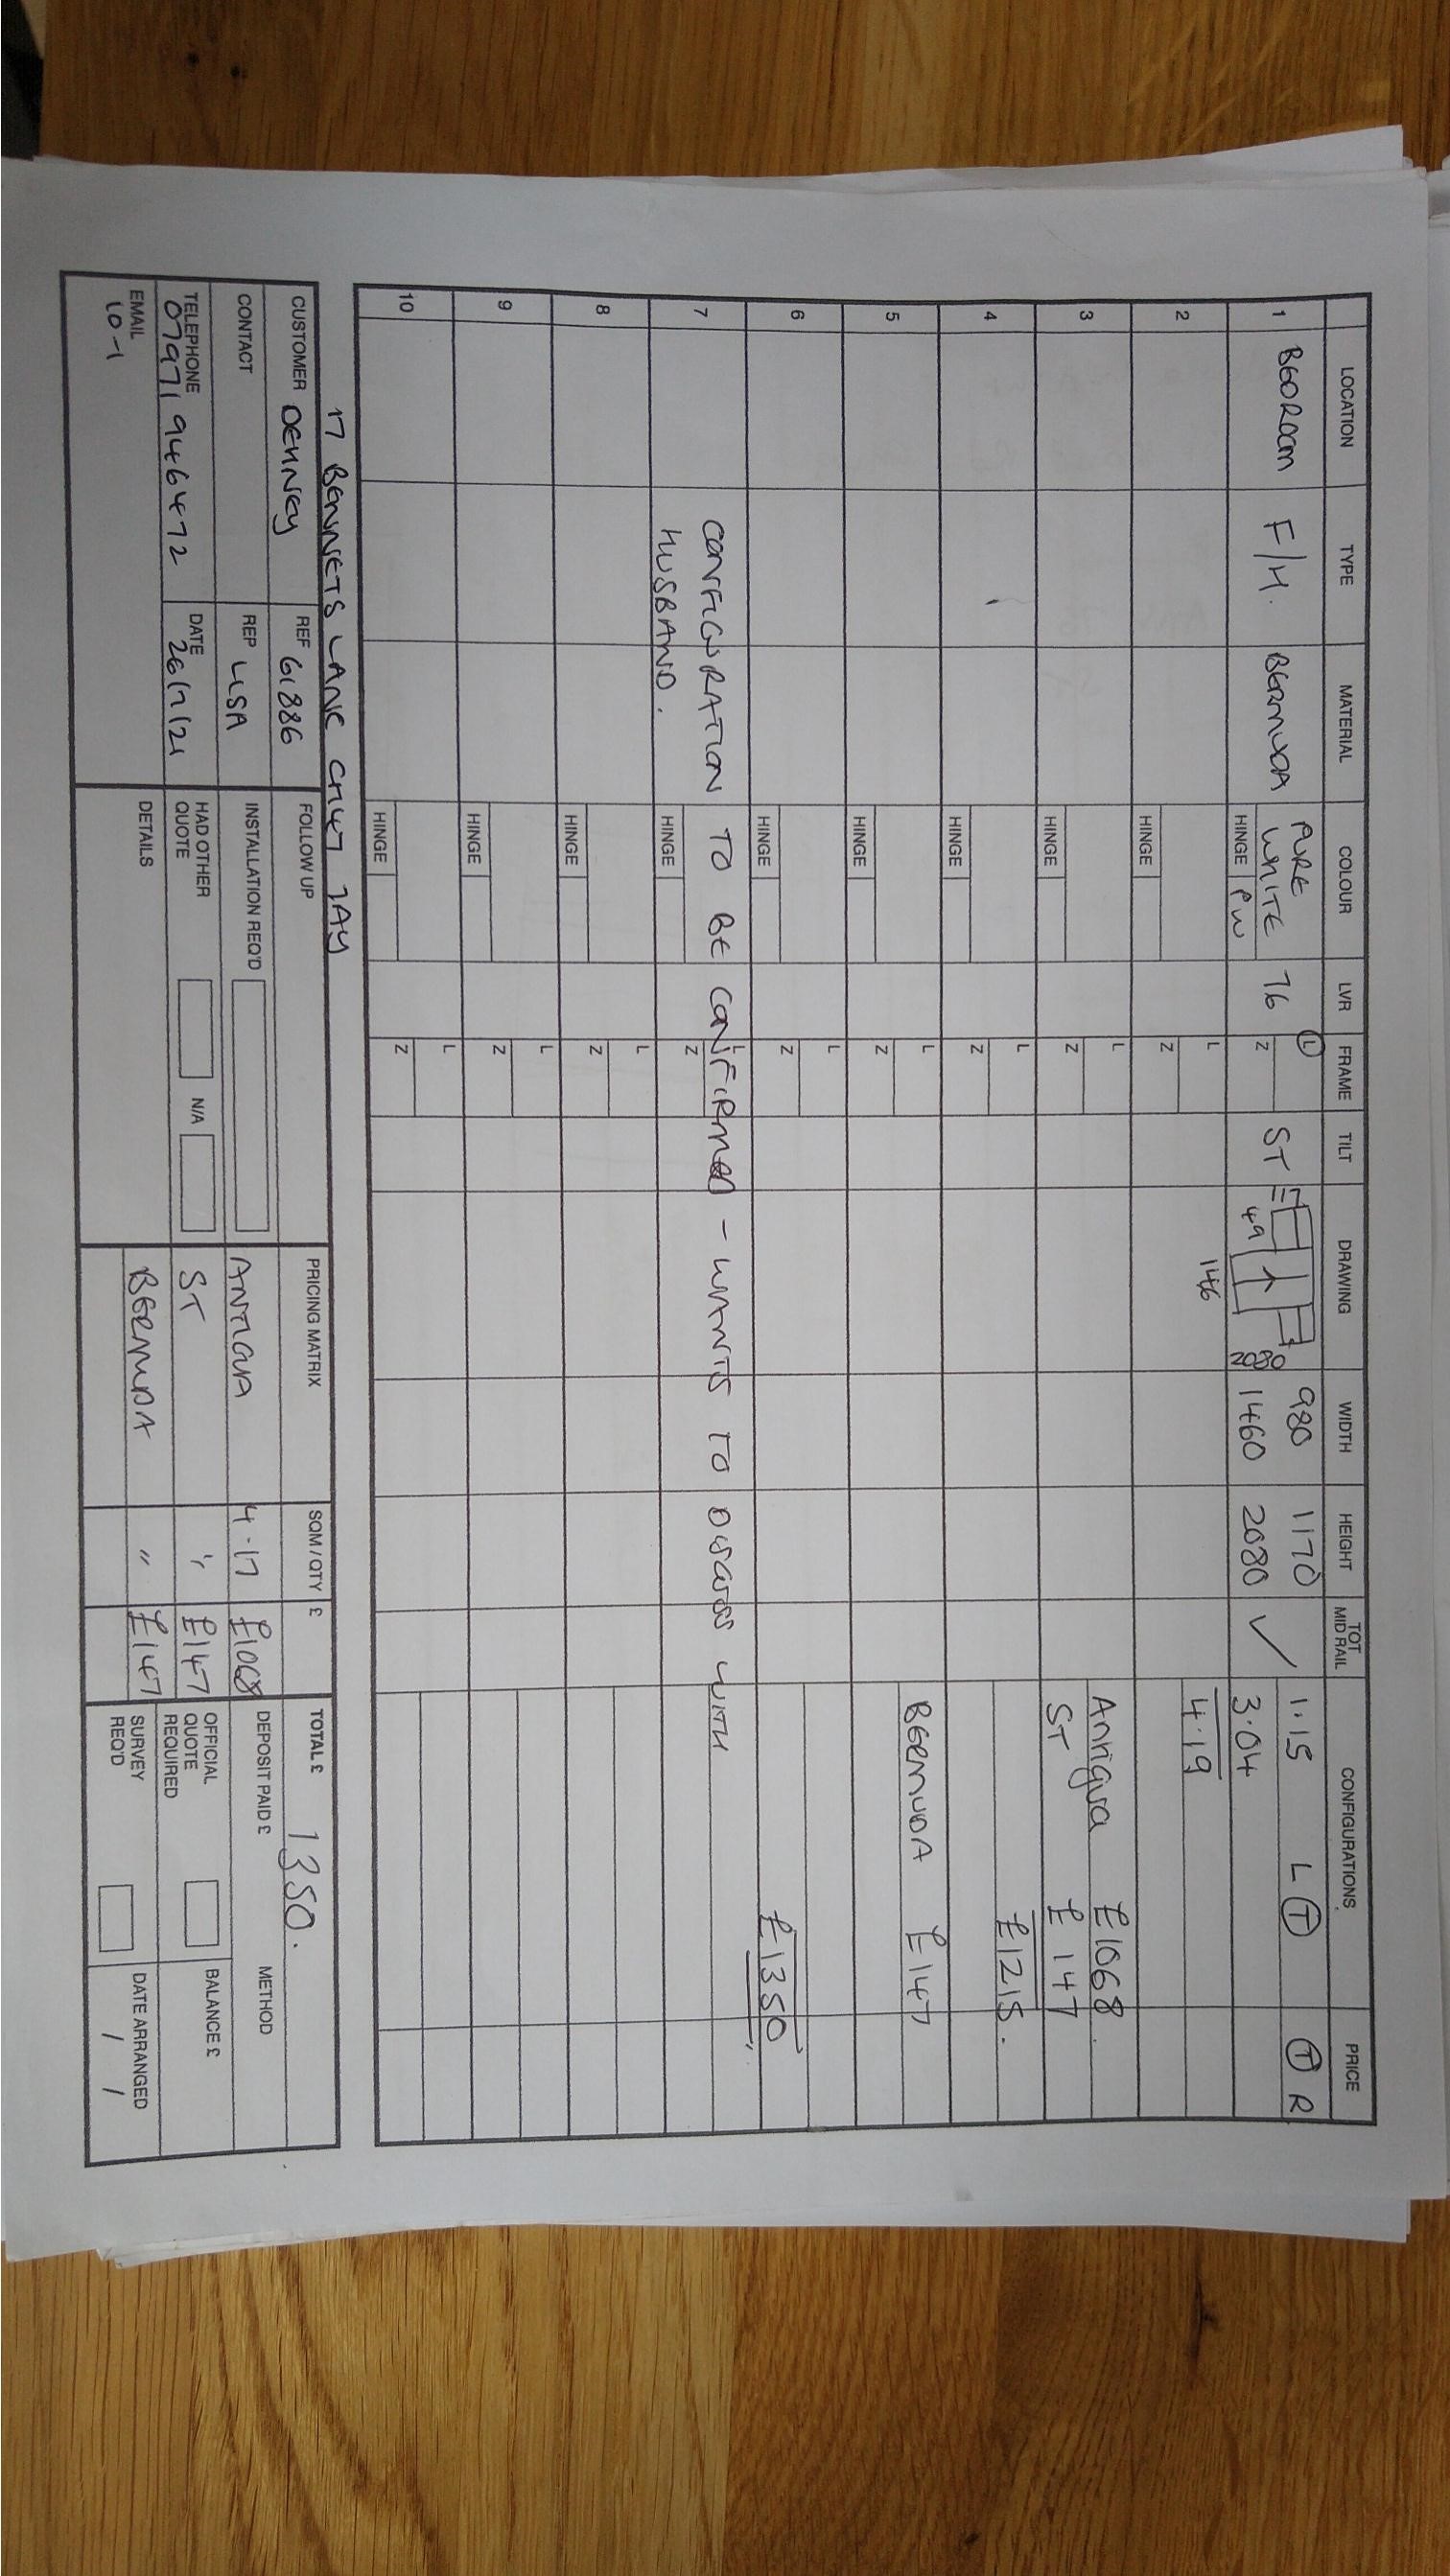 LOCATION TYPE MATERIAL COLOUR LVR FRAME TILT DRAWING WIDTH HEIGHT TOT MID RAIL CONFIGURATIONS PRICE
1 BEDROOM F/H. BERMUDA PURE WHITE 76 L ST 980 1170 1.15 L T T R
HINGE PW Z 49 2080 1460 2080 ✓ 3.04
146
2 L 4.19
HINGE Z
3 L Antigua £1068.
HINGE Z ST £147
4 L £1215.
HINGE Z
5 L BERMUDA £147
HINGE Z
6 L
HINGE Z £1350
7 CONFIGURATION TO BE CONFIRMED - WANTS TO DISCUSS WITH
HUSBAND.
L
HINGE Z
8 L
HINGE Z
9 L
HINGE Z
10 L
HINGE Z
17 BENNETS LANE CH47 7AY
CUSTOMER DENNEY REF 61886 FOLLOW UP PRICING MATRIX SQM / QTY £ TOTAL £ 1350.
CONTACT REP LISA INSTALLATION REQ'D ANTIGUA 4.17 £1068 DEPOSIT PAID £ METHOD
TELEPHONE 07971 946472 DATE 26/7/21 HAD OTHER QUOTE N/A ST " £147 OFFICIAL QUOTE REQUIRED BALANCE £
EMAIL 10-1 DETAILS BERMUDA " £147 SURVEY REQ'D DATE ARRANGED / /